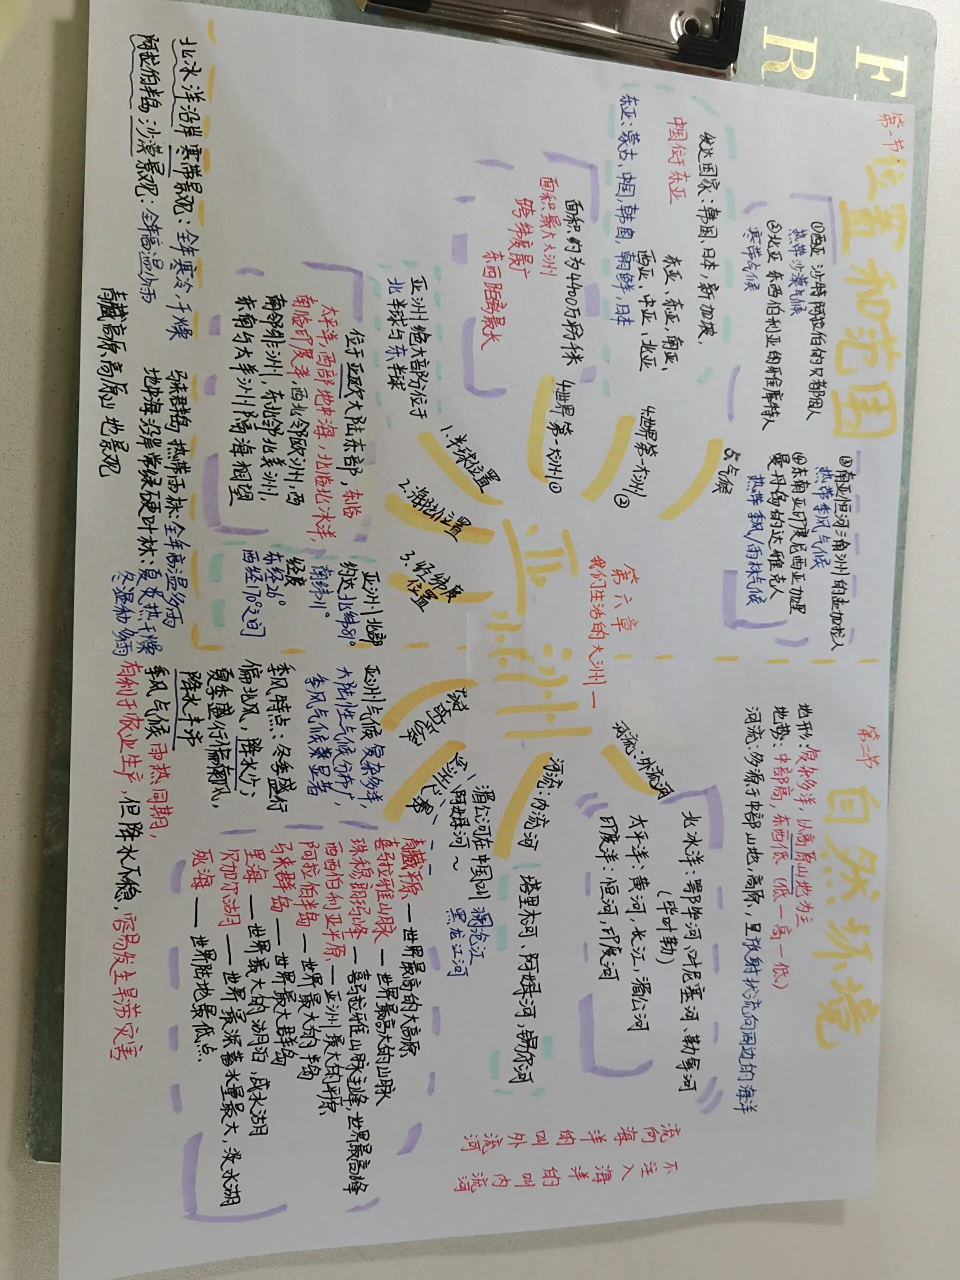 第一节
位置和范围
①西亚 沙特阿拉伯的贝都因人
热带沙漠气候
②北亚 东西伯利亚的雅库特人
寒带气候
③南亚恒河三角洲的孟加拉人
热带季风气候
④东南亚印度尼西亚加里
曼丹岛的达雅克人
热带季风/雨林气候
5气候
发达国家：韩国、日本，新加坡、
中国位于东亚
东亚：蒙古、中国，韩国，朝鲜，日本
东亚，东南亚，南亚，
西亚、中亚、北亚
4世界第一大洲②
面积约为4400万平方千米
面积最大大洲
跨纬度最广
东西距离最大
4世界第一大洲①
亚洲绝大部分位于
北半球与东半球
1.半球位置
位于亚欧大陆东部，东临
太平洋，西部地中海，北临北冰洋，
南临印度洋，西北邻欧洲，西
南邻非洲，东北邻北美洲，
东南与大洋洲隔海相望
2.海陆位置
亚洲北部
约达北纬81°
南纬11°
经度
东经26°
西经170°之间
3.经纬度
位置
北冰洋沿岸寒带景观：全年寒冷，干燥
阿拉伯半岛 沙漠景观：全年高温少雨
马来群岛 热带雨林：全年高温多雨
地中海沿岸常绿硬叶林：夏炎热干燥
冬温和多雨
青藏高原高原山地景观
第六章
我们生活的大洲—
亚洲
第二节
自然环境
地形：复杂多样，以高原山地为主
地势：中部高，东西低（低—高—低）
河流：多源于中部山地，高原，呈放射状流向周边的海洋
河流：外流河
北冰洋：鄂毕河、叶尼塞河、勒拿河
太平洋：黄河，长江，湄公河
印度洋：恒河，印度河
流向海洋的叫外流河
不注入海洋的叫内流河
河流：内流河
塔里木河、阿姆河，锡尔河
湄公河在中国叫 澜沧江
黑龙江河
青藏高原—世界最高的大高原
喜马拉雅山脉—世界最高大的山脉
珠穆朗玛峰—喜马拉雅山脉主峰，世界最高峰
西西伯利亚平原—亚洲最大的平原
阿拉伯半岛—世界最大的半岛
马来群岛—世界最大群岛
里海—世界最大的湖泊，咸水湖
贝加尔湖—世界最深蓄水量最大，淡水湖
死海—世界陆地最低点
亚洲气候 复杂多样，
大陆性气候分布广，
季风气候显著
季风特点：冬季盛行
偏北风，降水少，
夏季盛行偏南风，
降水丰沛
季风气候 雨热同期，
有利于农业生产，但降水不稳，容易发生旱涝灾害